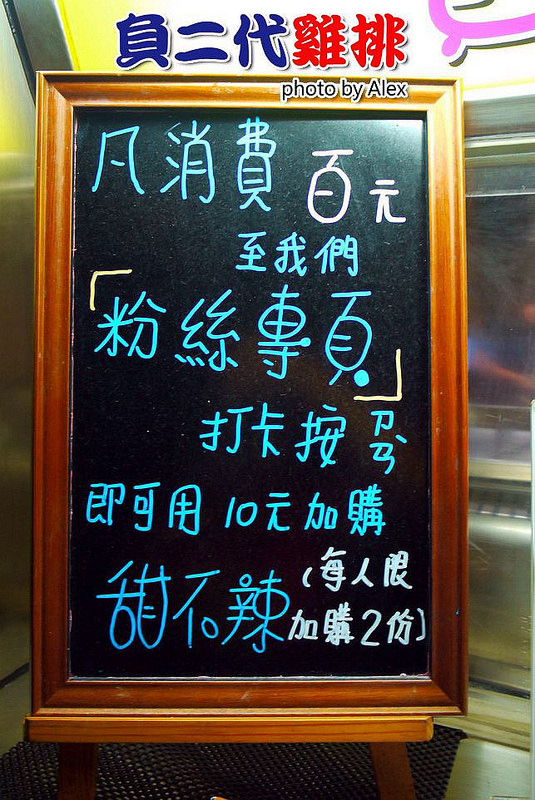 負二代雞排
photo by Alex
凡消費百元
至我們
「粉絲專頁」
打卡按ㄗㄢˋ
即可用10元加購
甜不辣(每人限
加購2份)